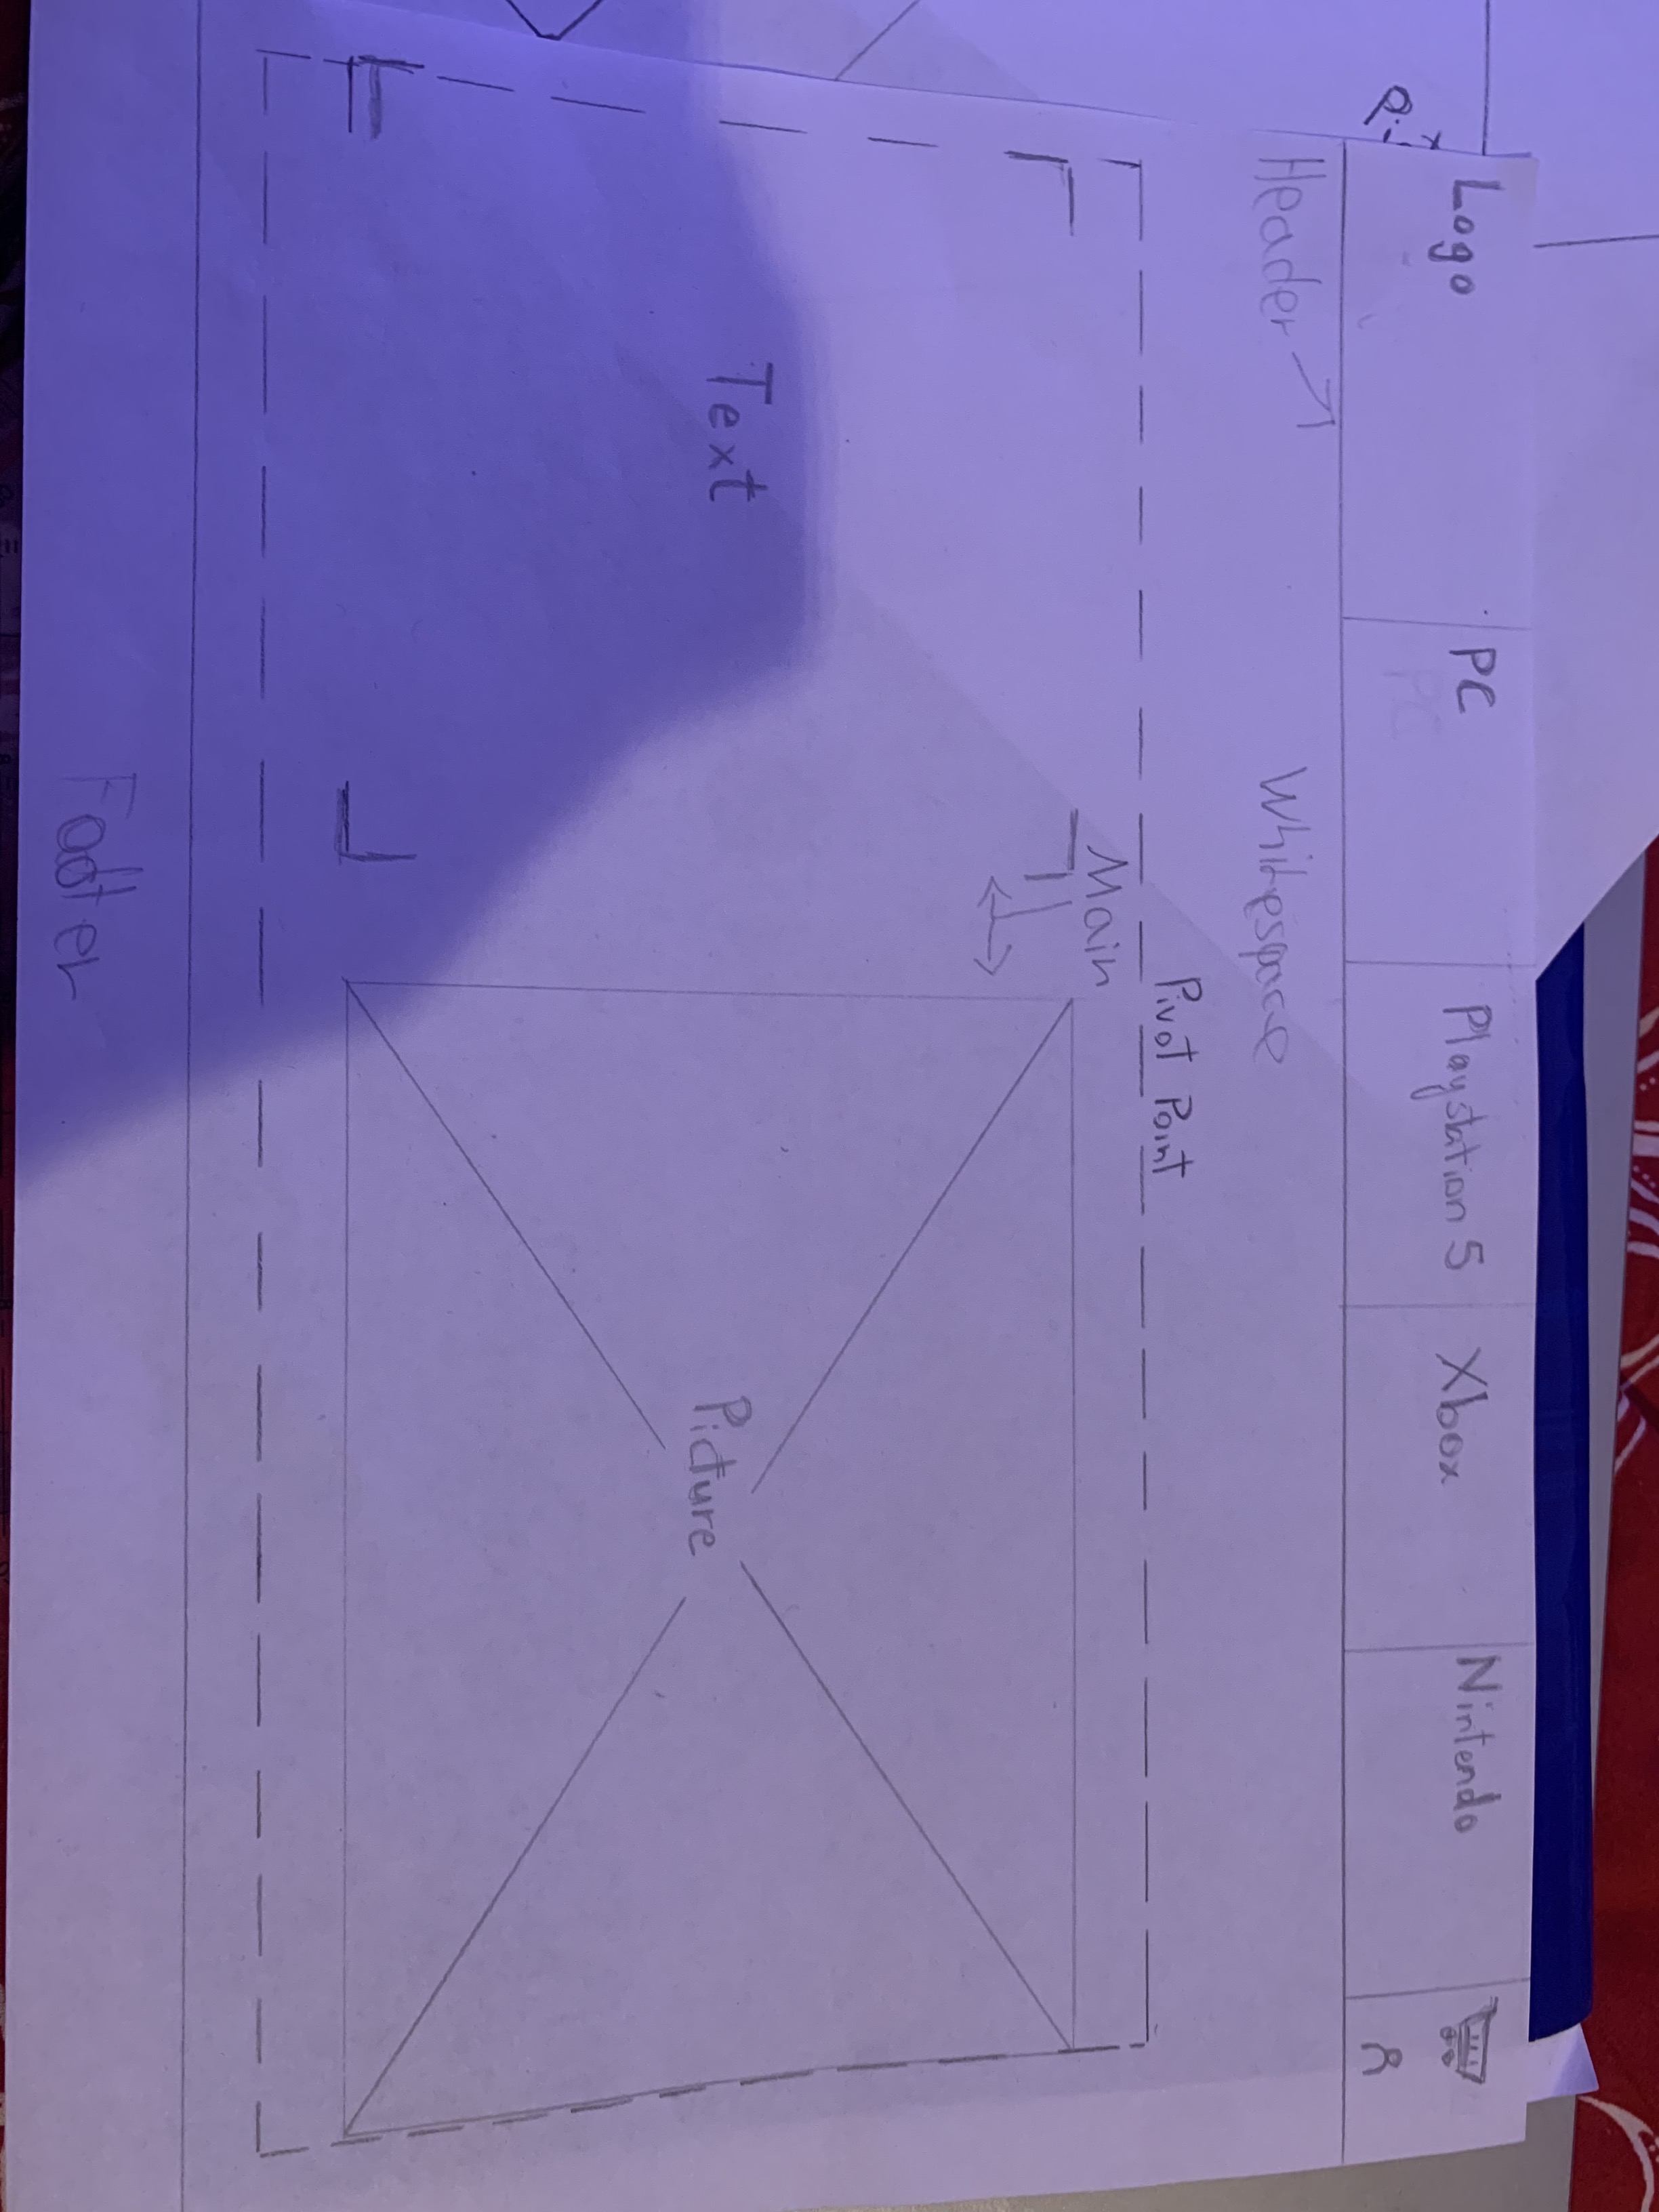 Logo
PC
PC
Playstation 5
Xbox
Nintendo
Header
Whitespace
Pivot Point
Main
Text
Picture
Footer